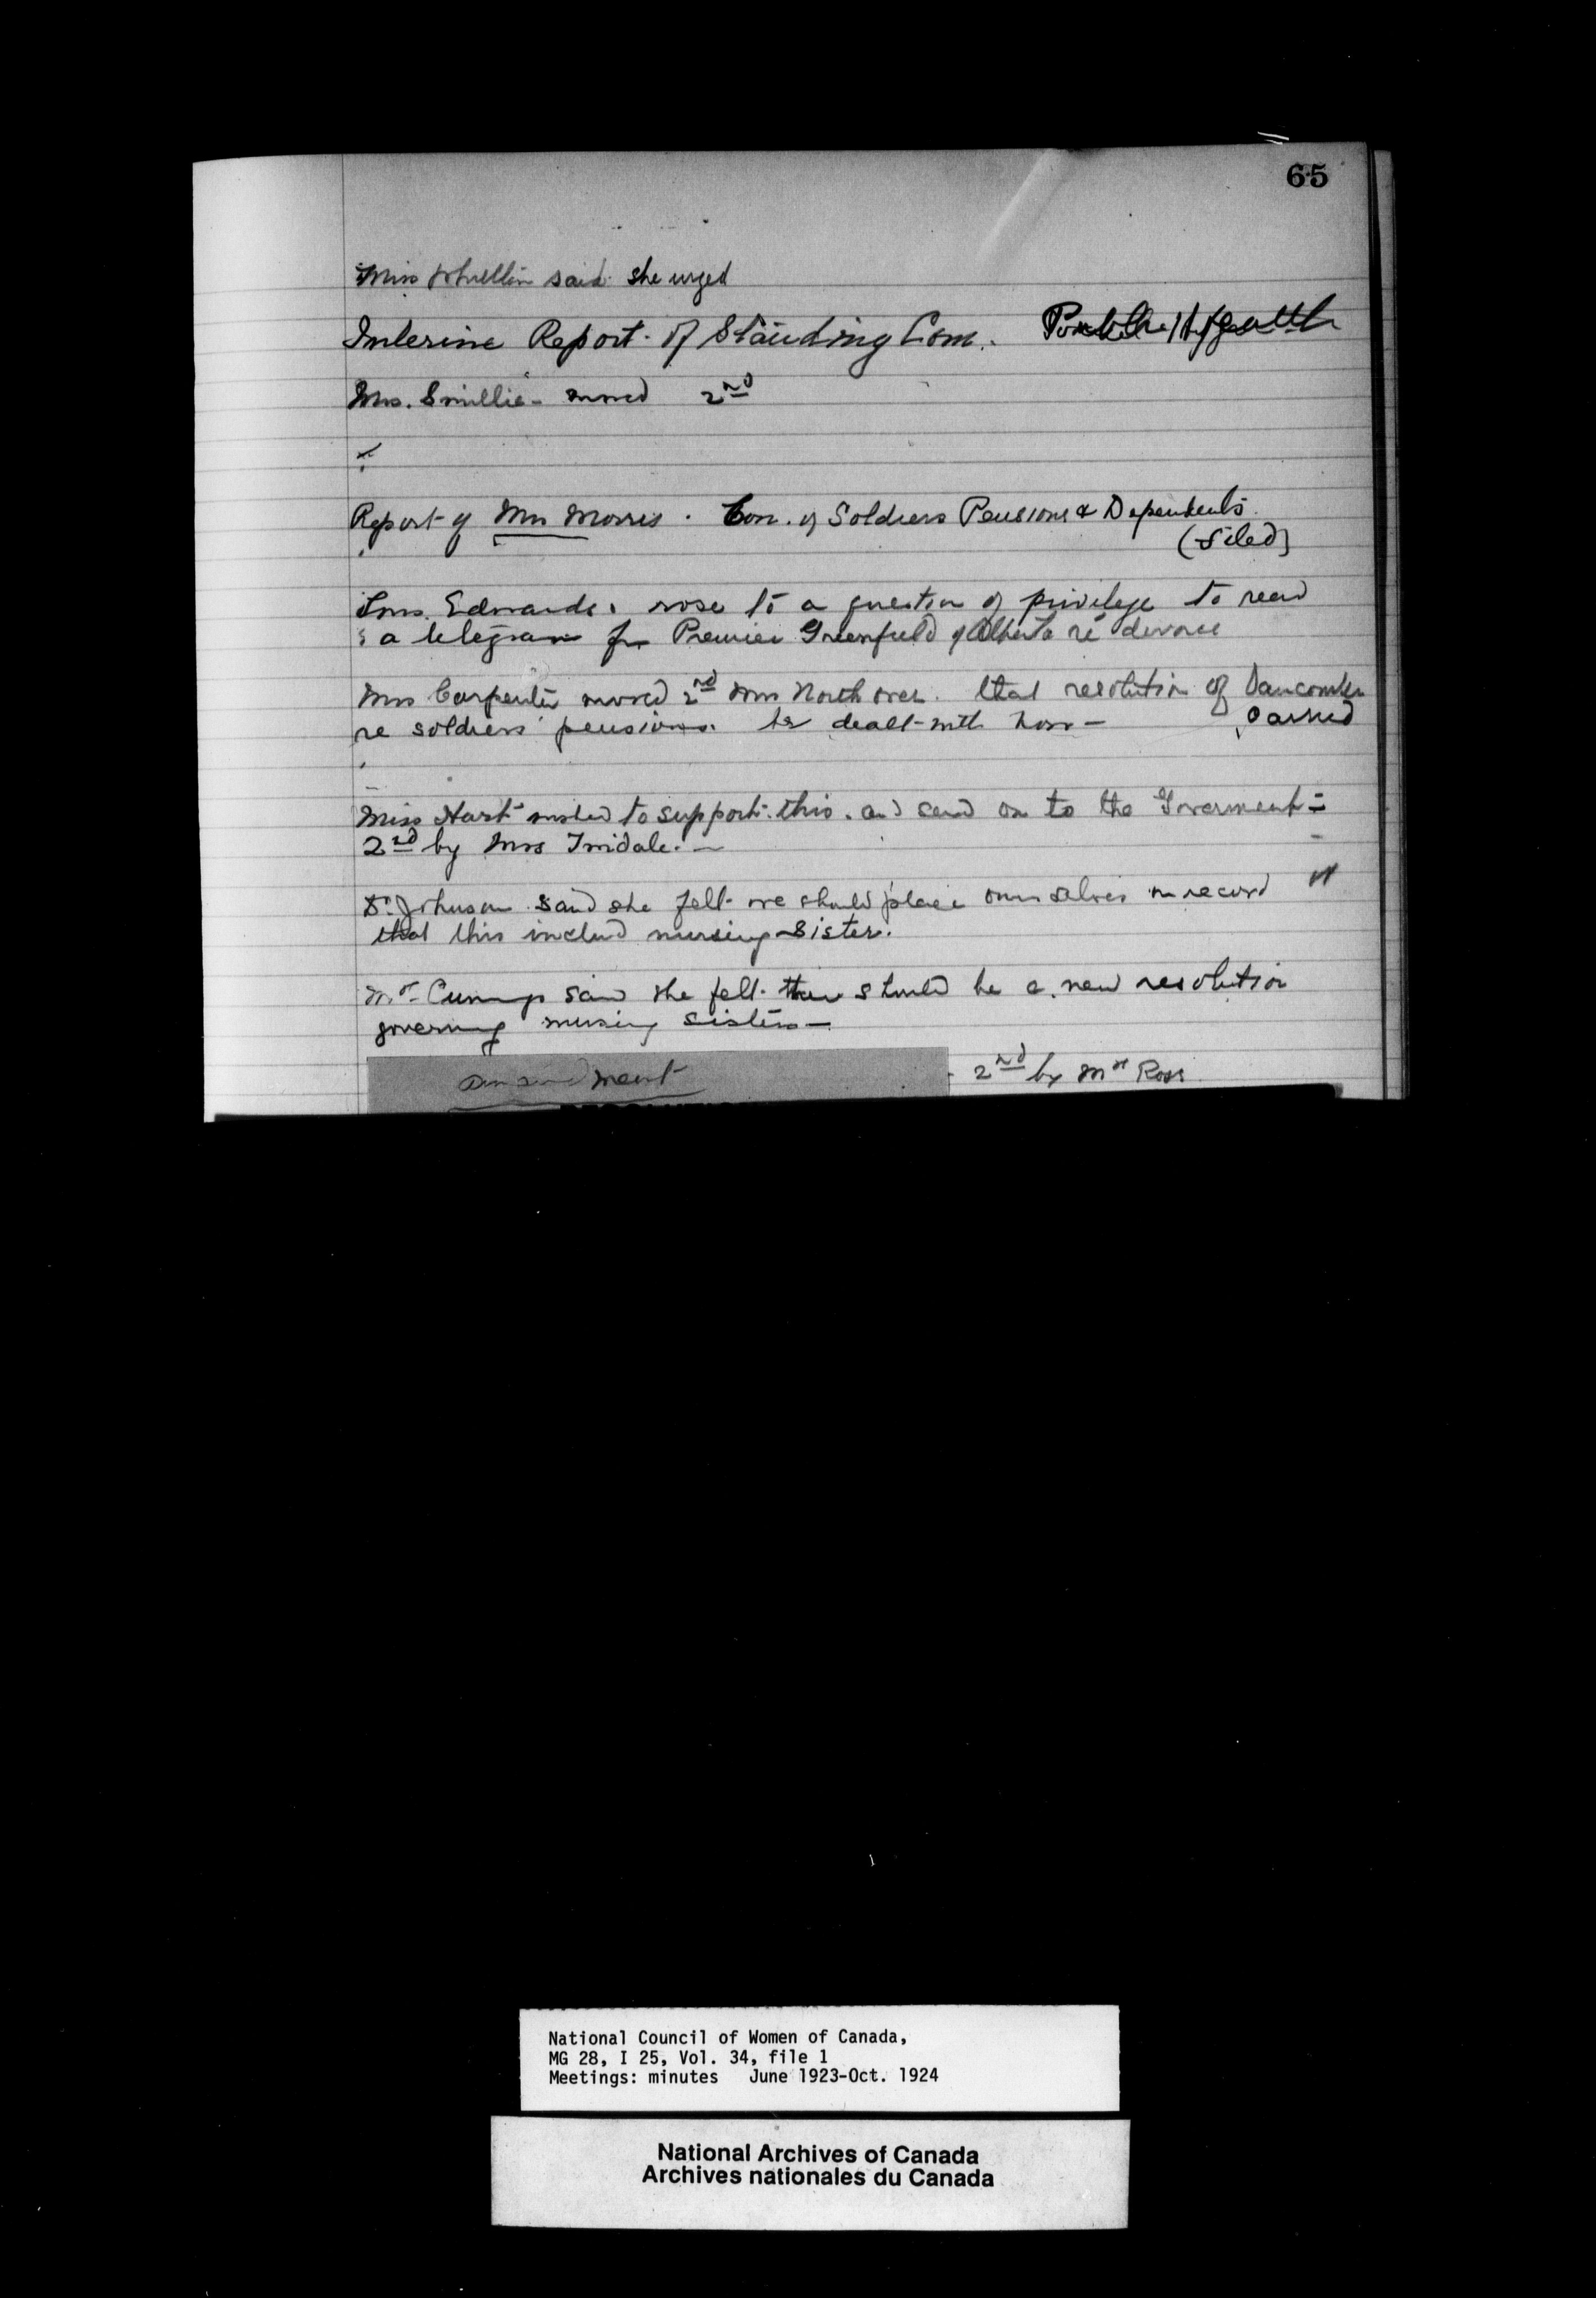 65
Miss said she urged
Interim Report of Standing Com. Public Health
Mrs. Smillie - moved 2nd
Report of Mrs Morris. Con. of Soldiers Pensions & Dependents.
(Filed)
Mrs. Edwards. rose to a question of privilege to read
a telegram fr Premier Greenfield of Alberta re divorce
Mrs Carpenter moved 2nd Mrs Northover. that resolution of Vancouver
re soldiers' pensions. be dealt with now - passed
Miss Hart wished to support this. and send on to the Goverment -
2nd by Mrs Tindale. -
Dr. Johnson said she felt we should place ourselves on record
that this includ nursing sister.
Mrs. Cumings said she felt there should be a new resolution
governing nursing sisters -
amendment - 2nd by Mrs Ross
National Council of Women of Canada,
MG 28, I 25, Vol. 34, file 1
Meetings: minutes June 1923-Oct. 1924
National Archives of Canada
Archives nationales du Canada